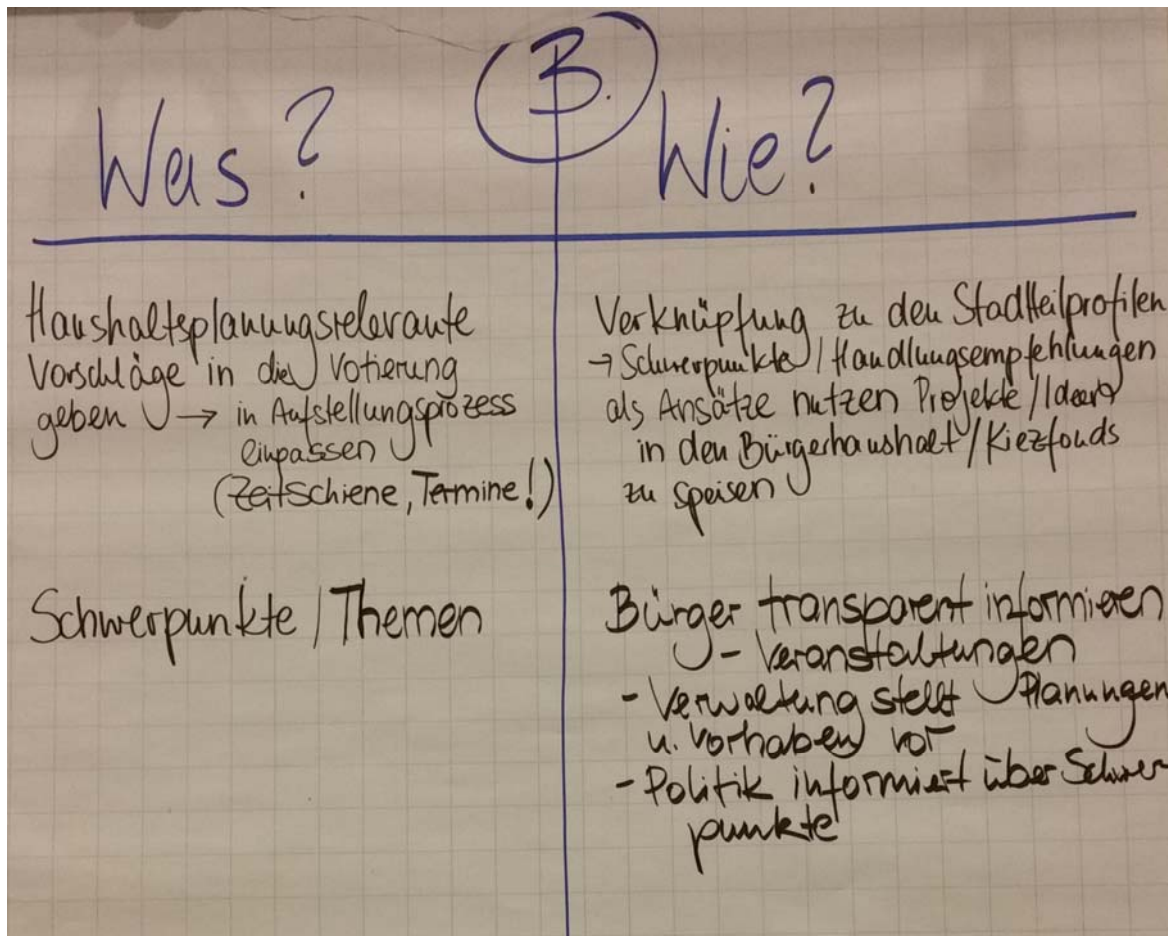 B.
Was?
Haushaltsplanungsrelevante
Vorschläge in die Votierung
geben → in Aufstellungsprozess
einpassen
(Zeitschiene, Termine!)
Schwerpunkte / Themen
Wie?
Verknüpfung zu den Stadtteilprofilen
→ Schwerpunkte / Handlungsempfehlungen
als Ansätze nutzen Projekte / Ideen
in den Bürgerhaushalt / Kiezfonds
zu speisen
Bürger transparent informieren
- Veranstaltungen
- Verwaltung stellt Planungen
u. Vorhaben vor
- Politik informiert über Schwer-
punkte